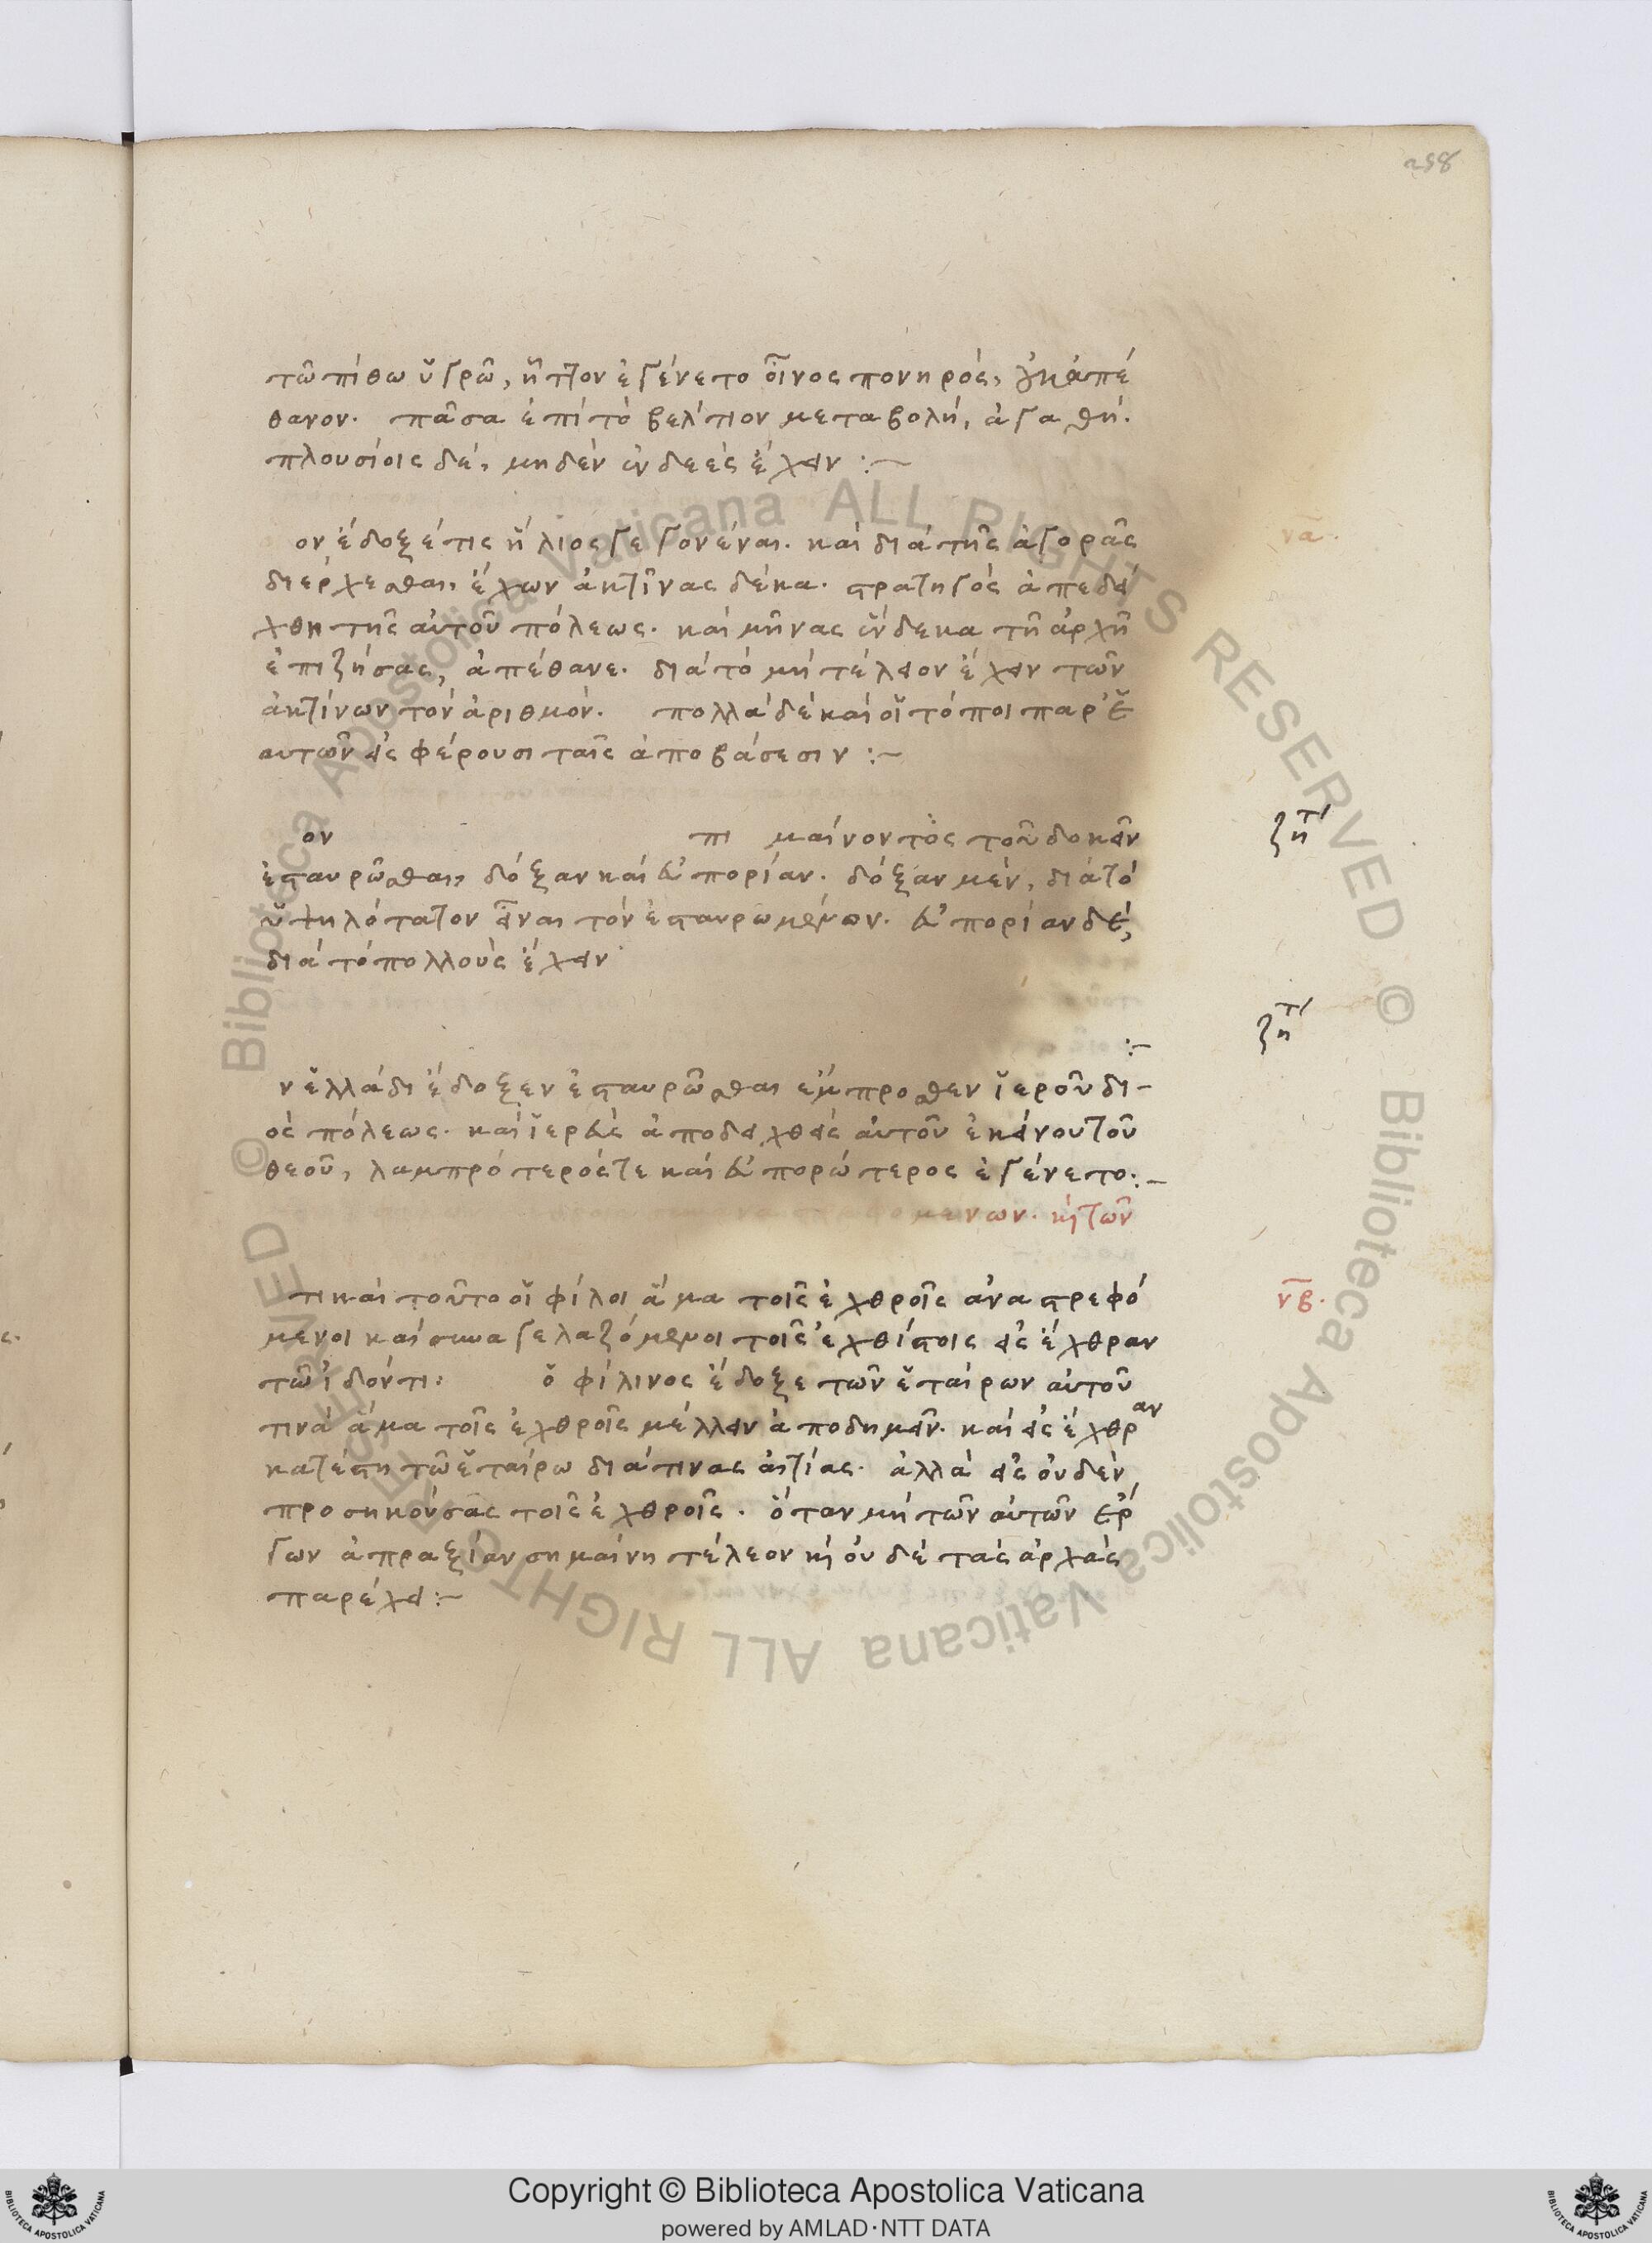 258
τῶ πίθω ὑγρῶ, ἧττον ἐγένετο οἶνος πονηρός, οὐκ ἀπέ
θανον. πᾶσα ἐπὶ τὸ βέλτιον μεταβολὴ, ἀγαθή.
πλουσίοις δὲ, μηδὲν ἐνδεὲς ἔχειν :~
ον ἔδοξέ τις ἥλιος γεγονέναι. καὶ διὰ τῆς ἀγορᾶς
να.
διέρχεσθαι, ἔχων ἀκτῖνας δέκα. στρατηγὸς ἀπεδεί
χθη τῆς αὐτοῦ πόλεως. καὶ μῆνας ἕνδεκα τῆ ἀρχῆ
ἐπιζήσας, ἀπέθανε. διὰ τὸ μὴ τέλειον ἔχειν τῶν
ἀκτίνων τὸν ἀριθμόν. πολλὰ δὲ καὶ οἱ τόποι παρ' ἑ
αυτῶν εἰσφέρουσι ταῖς ἀποβάσεσιν :~
ον τι μαίνοντος τοῦ δοκεῖν
ζητ
ἐσταυρῶσθαι, δόξαν καὶ εὐπορίαν. δόξαν μὲν, διὰ τὸ
ὑψηλότατον εἶναι τὸν ἐσταυρωμένον. εὐπορίαν δὲ,
διὰ τὸ πολλοὺς ἔχειν
ζητ
:~
ν ἑλλάδι ἔδοξεν ἐσταυρῶσθαι ἔμπροσθεν ἱεροῦ δι-
ὸς πόλεως. καὶ ἱερεὺς ἀποδειχθεὶς αὐτοῦ ἐκείνου τοῦ
θεοῦ, λαμπρότερός τε καὶ εὐπορώτερος ἐγένετο:~
μενων. καὶ τῶν
τι καὶ τοῦτο οἱ φίλοι ἅμα τοῖς ἐχθροῖς ἀναστρεφό
νβ.
μενοι καὶ συναγελαζόμενοι τοῖς ἐχθίστοις εἰς ἔχθραν
τῶ ἰδόντι: ὁ φίλινος ἔδοξε τῶν ἑταίρων αὐτοῦ
τινὰ ἅμα τοῖς ἐχθροῖς μέλλειν ἀποδημεῖν. καὶ εἰς ἔχθραν
κατέστη τῶ ἑταίρω διά τινας αἰτίας. ἀλλὰ εἰς οὐδὲν
προσηκούσας τοῖς ἐχθροῖς. ὅταν μὴ τῶν αὐτῶν ἔρ
γων ἀπραξίαν σημαίνη τέλεον καὶ οὐδὲ τὰς ἀρχὰς
παρέχει :~
Copyright © Biblioteca Apostolica Vaticana
powered by AMLAD·NTT DATA